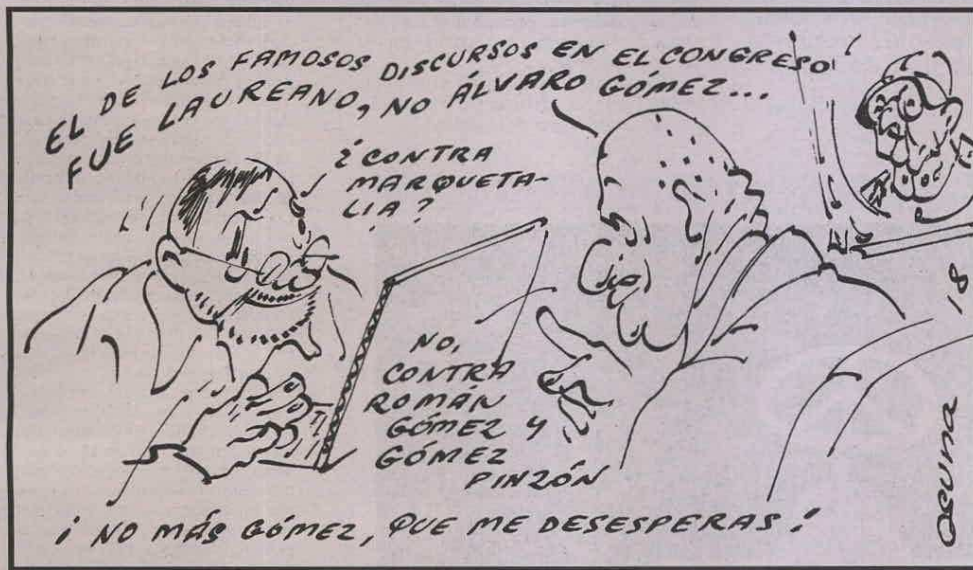 EL DE LOS FAMOSOS DISCURSOS EN EL CONGRESO
FUE LAUREANO, NO ÁLVARO GÓMEZ...
¿CONTRA
MARQUETA-
LIA?
NO,
CONTRA
ROMÁN
GÓMEZ Y
GÓMEZ
PINZÓN
¡NO MÁS GÓMEZ, QUE ME DESESPERAS!
OSUNA 18